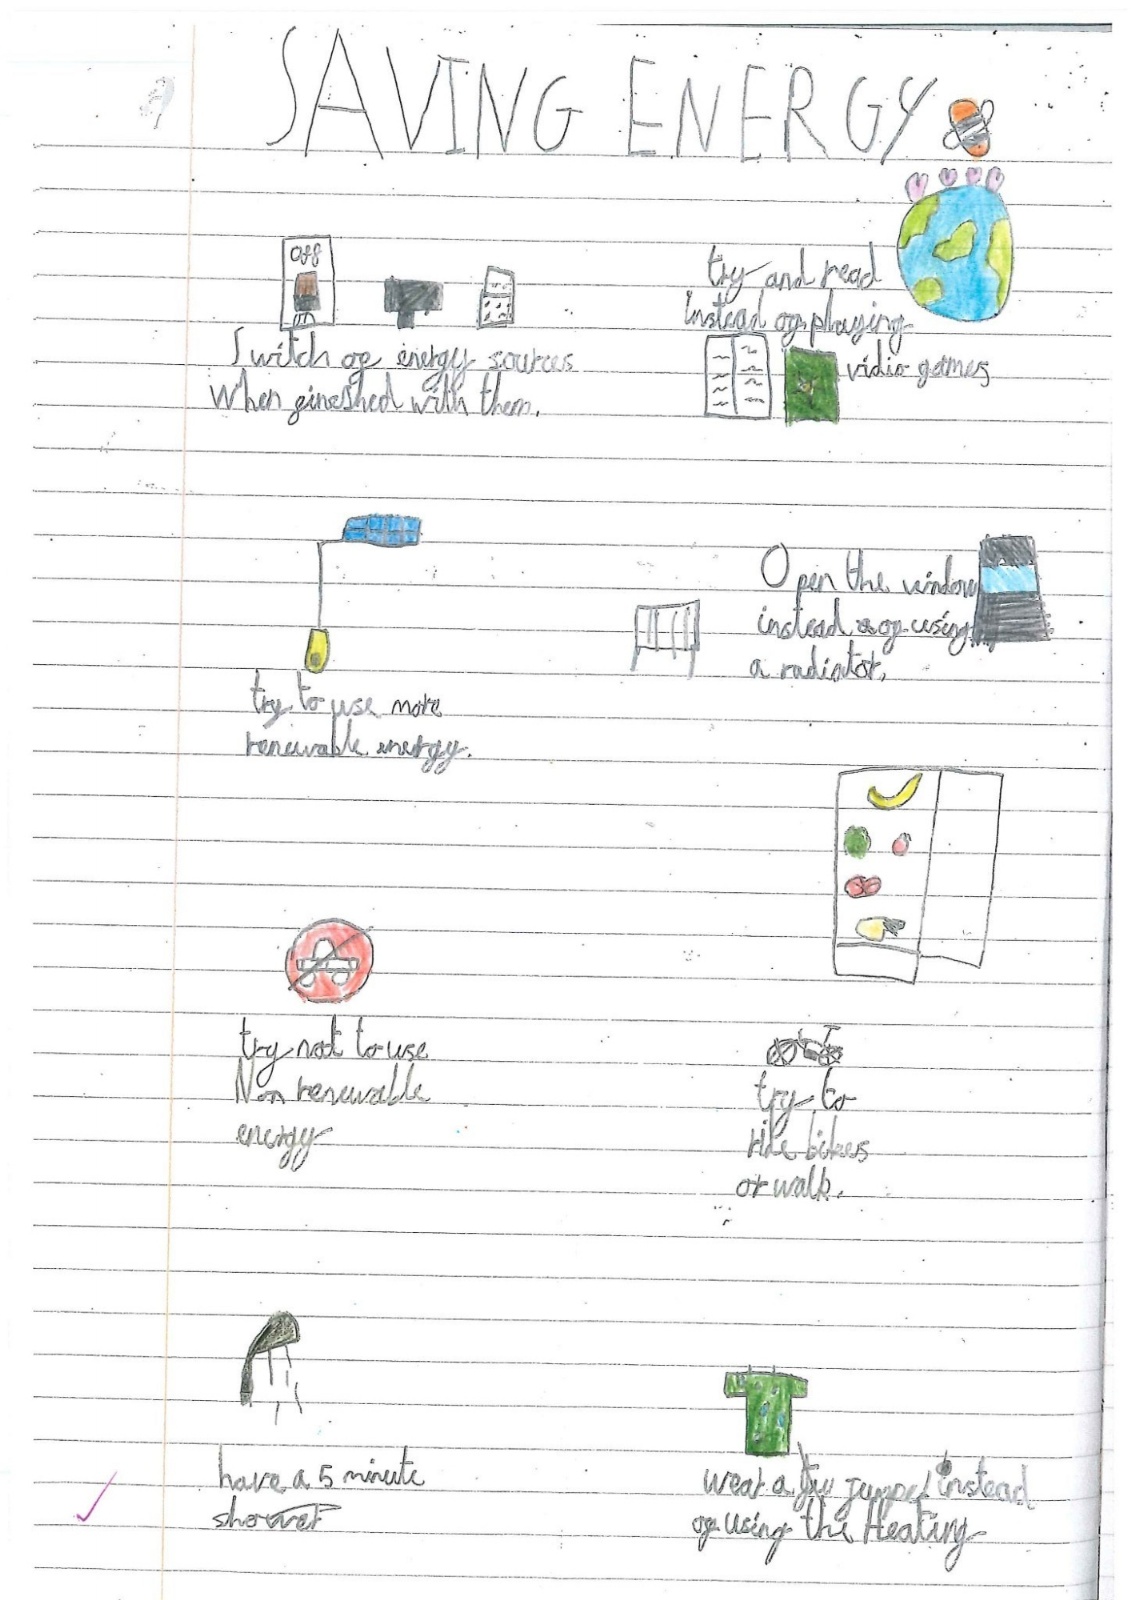 SAVING ENERGY
Off
Switch of energy sources
When fineshed with them.
try and read
instead of playing
vidio games
try to use more
renewable energy.
Open the window
instead of using
a radiator.
try not to use
Non renewable
energy
try to
ride bikes
or walk.
have a 5 minute
shower
wear a jumper instead
of using the Heating